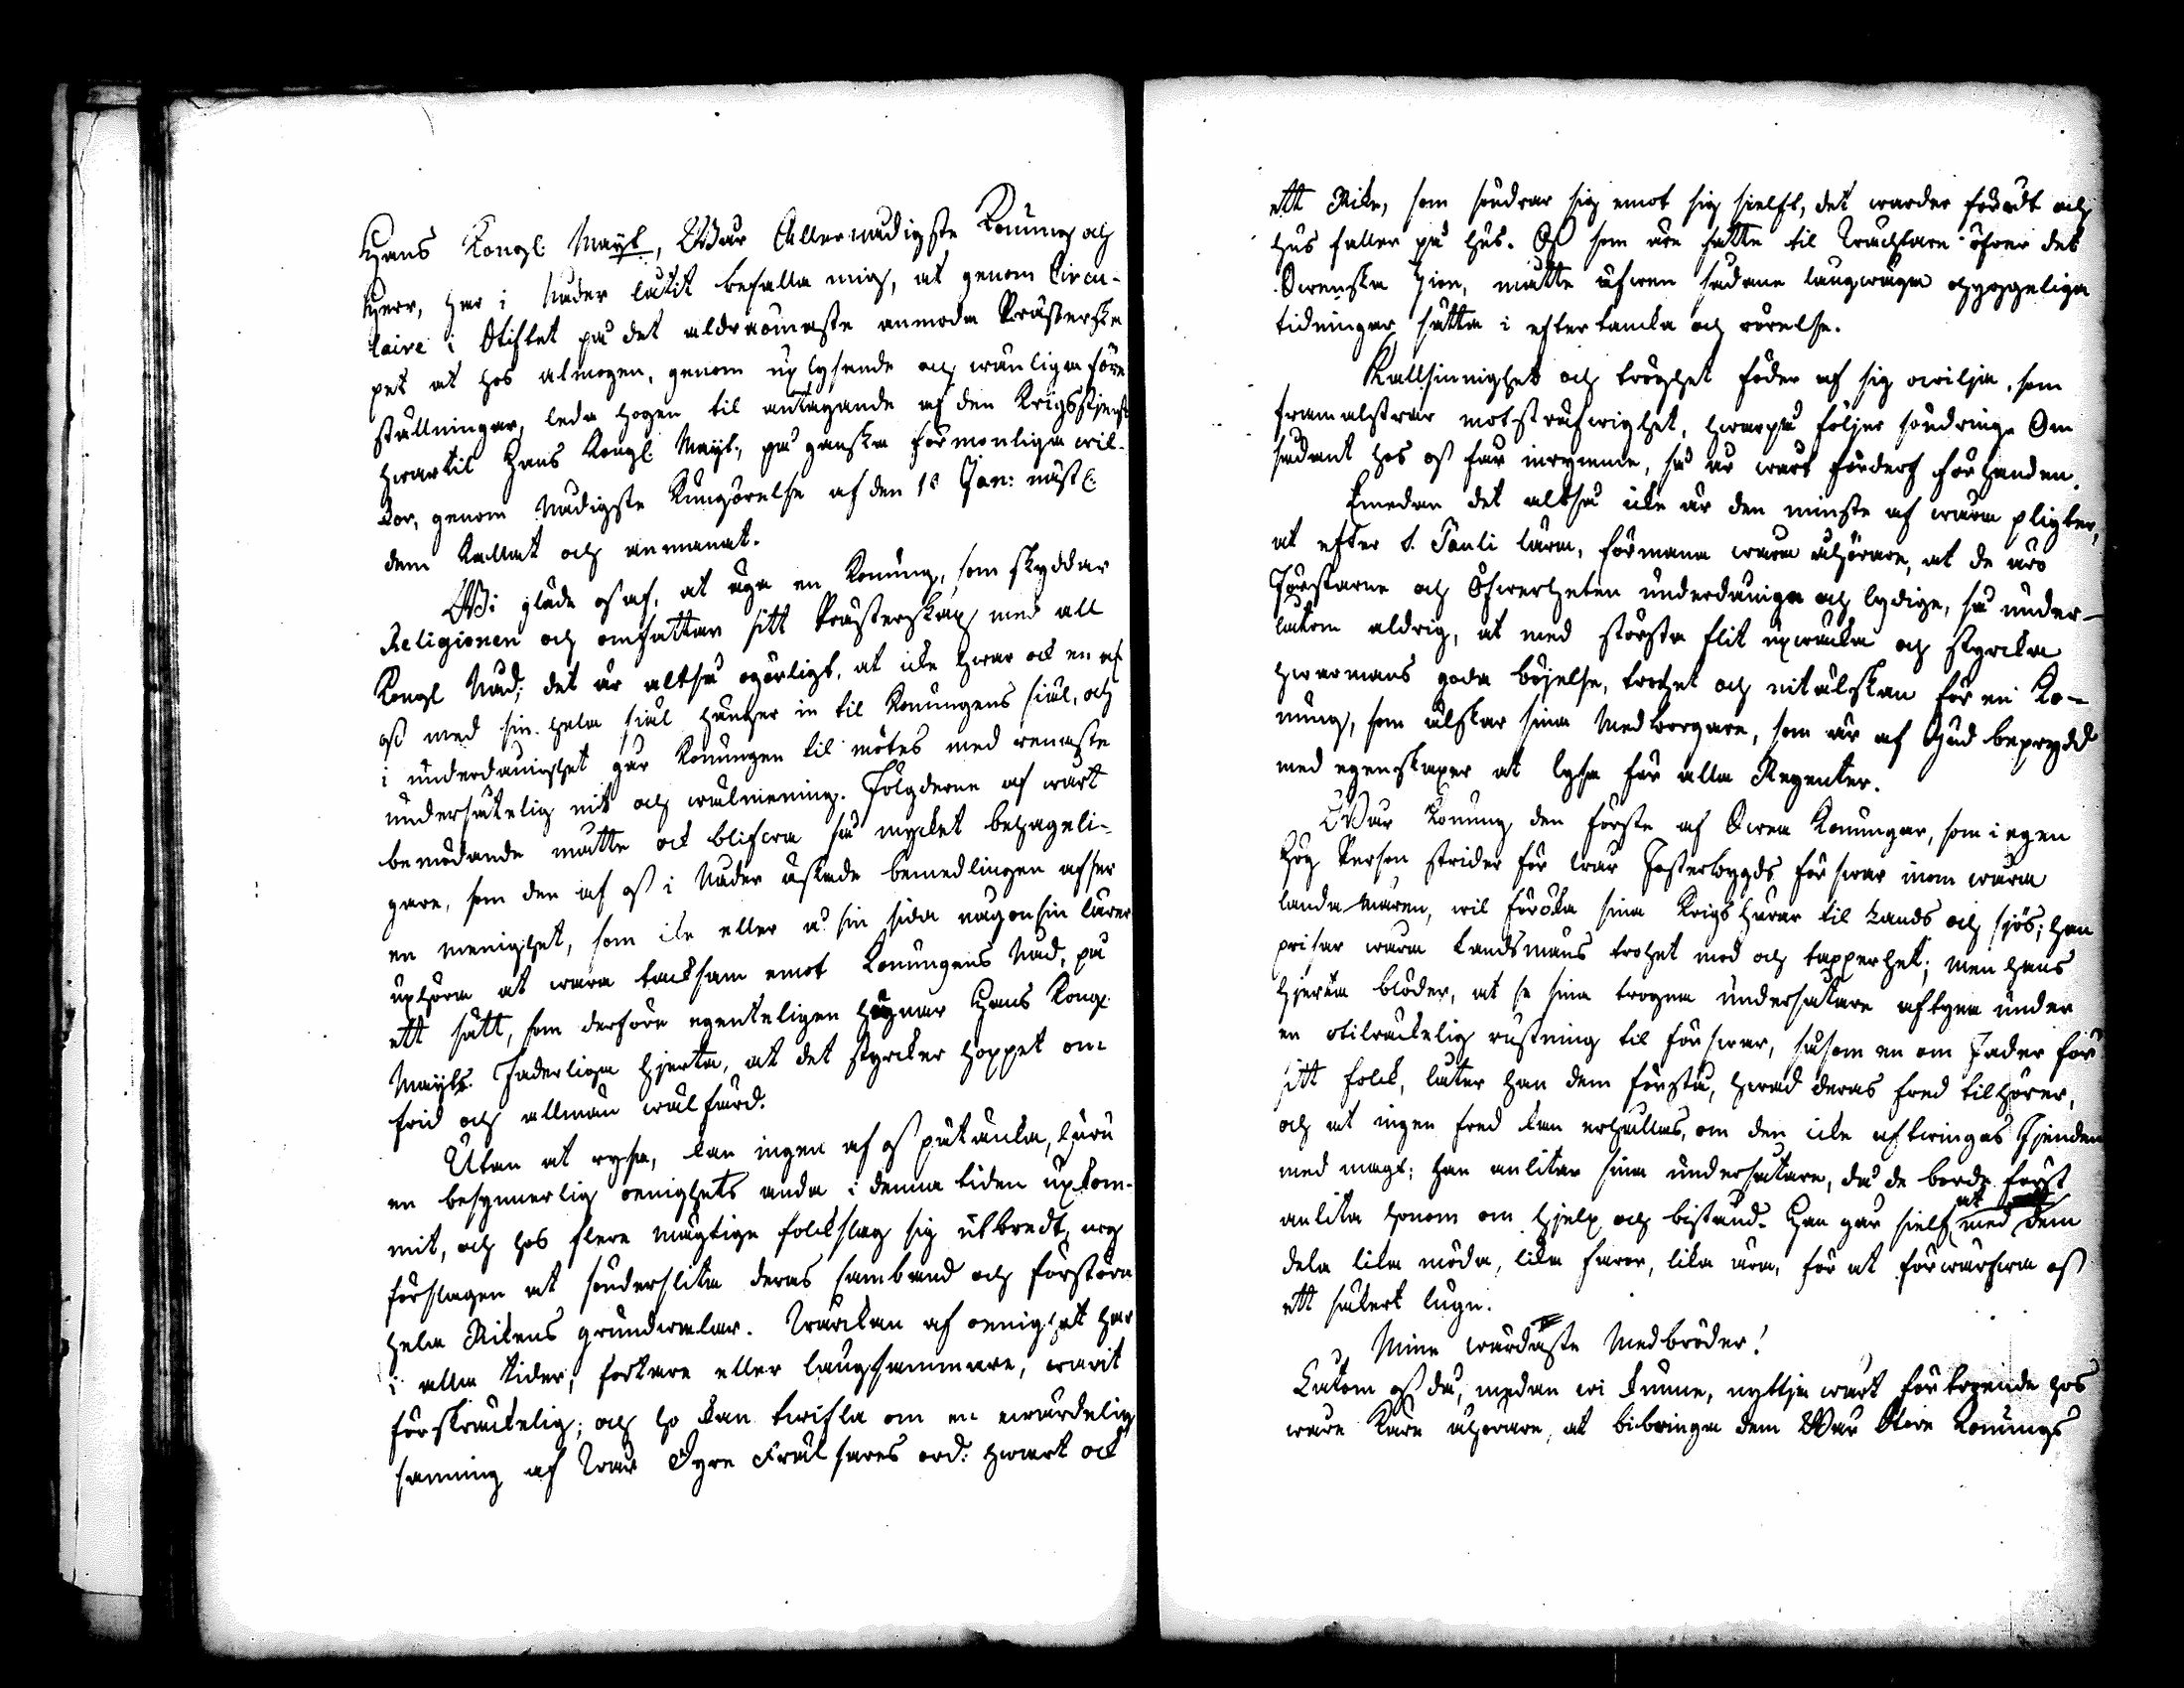 Hans Kongl. Mayt, Wår Allernådigste Konung och
Herr, har i Nåder låtit befalla mig, at genom Circu-
laire i Stiftet på det aldraömaste anmoda Prästerska
pet at hos almogen, genom uplysende och wänliga före
ställningar, leda hogen til antagande af den Krigstjenst
hwartil Hans Kongl. Mayt, på ganska förmonliga wil-
kor, genom Nådigste Kungörelse af den 18 Jan: näst l:
dem kallat och anmanat.
Wi gläde oss af, at äga en Konung, som skyddar
Religionen och omfattar sitt Prästerskap med all
Kongl Nåd; det är altså ogörligt, at icke hwar ock en af
oss med sin hela siäl hänger in til Konungens siäl, och
i underdånighet går Konungen til mötes med renaste
undersåtelig nit och wälmening. Fölgderne af wårt
bemödande måtte ock blifwa så mycket behageli-
gare, som den af oss i Nåder äskade bemedlingen afser
en menighet, som icke eller å sin sida någonsin lärer
uphöra at wara tacksam emot Konungens Nåd, på
ett sätt, som derföre egenteligen hugnar Hans Kongl.
Mayts. Faderliga hjerta, at det styrcker hoppet om
frid och allmän wälfärd.
Utan at rysa, kan ingen af oss påtänka, huru
en besynnerlig oenighets anda i denna tiden upkom-
mit, och hos flere mägtige folckslag sig utbredt, arg
förslagen at sönderslita deras samband och förstöra
hela Rikens grundwalar. Wärckan af oenighet har
i alla tider, fortare eller långsammare, warit
förskräckelig; och ho kan twifla om en owärdelig
sanning af Wår Dyre Frälsares ord: hwart ock
ett Rike, som söndrar sig emot sig sielft, det warder förödt och
hus faller på hus. Oss som äre satte til Wäcktare öfwer det
Swenska Zion, måtte äfwen sådane langwäga ohyggeliga
tidningar sätta i eftertancka och rörelse.
Kallsinnighet och tröghet föder af sig owilja, som
framalstrar motsträfwighet, hwarpå följer söndring. Om
sådant hos oss får inrymme, så är wårt förderf för handen.
Emedan det altså icke är den minste af wåra pligter,
at efter S. Pauli lära, förmana wåra åhörare, at de äro
Förstarne och Öfwerheten underdåniga och lydige, så under-
låtom aldrig, at med största flit upwäcka och styrcka
hwarmans goda böjelse, trohet och nitälskan för en Ko-
nung, som älskar sina Medborgare, som är af Gud beprydd
med egenskaper at lysa för alla Regenter.
Wår Konung den förste af Swea Konungar, som i egen
hög Person strider för wår Fosterbygds förswar inom wåra
landamären, wil föröka sina Krigshärar til Lands och sjös; han
prisar wåra Landsmäns trohet mod och tapperhet; men hans
hjerta blöder, at se sina trogna undersåtare aftyna under
en otilräckelig rustning til förswar, såsom en om Fader för
sitt folck, låter han dem förstå, hwad deras fred tilhörer,
och at ingen fred kan erhållas, om den icke aftwingas Fjenden
med magt; han anlitar sina undersåtare, då de borde först
anlita honom om hjelp och bistånd. Han går sielf, at med dem
dela lika möda, lika faror, lika ära, för at förwärfwa oss
ett säkert lugn.
Mine wärdaste Medbröder!
Låtom oss då, medan wi kunne, nyttja wårt förtroende hos
ware Käre åhörare, at bibringa dem Wår Store Konungs